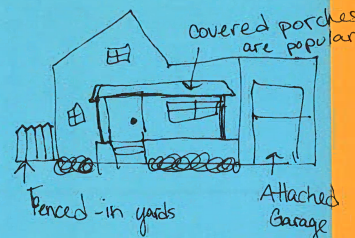 covered porches
are popular
Fenced-in yards
Attached
Garage